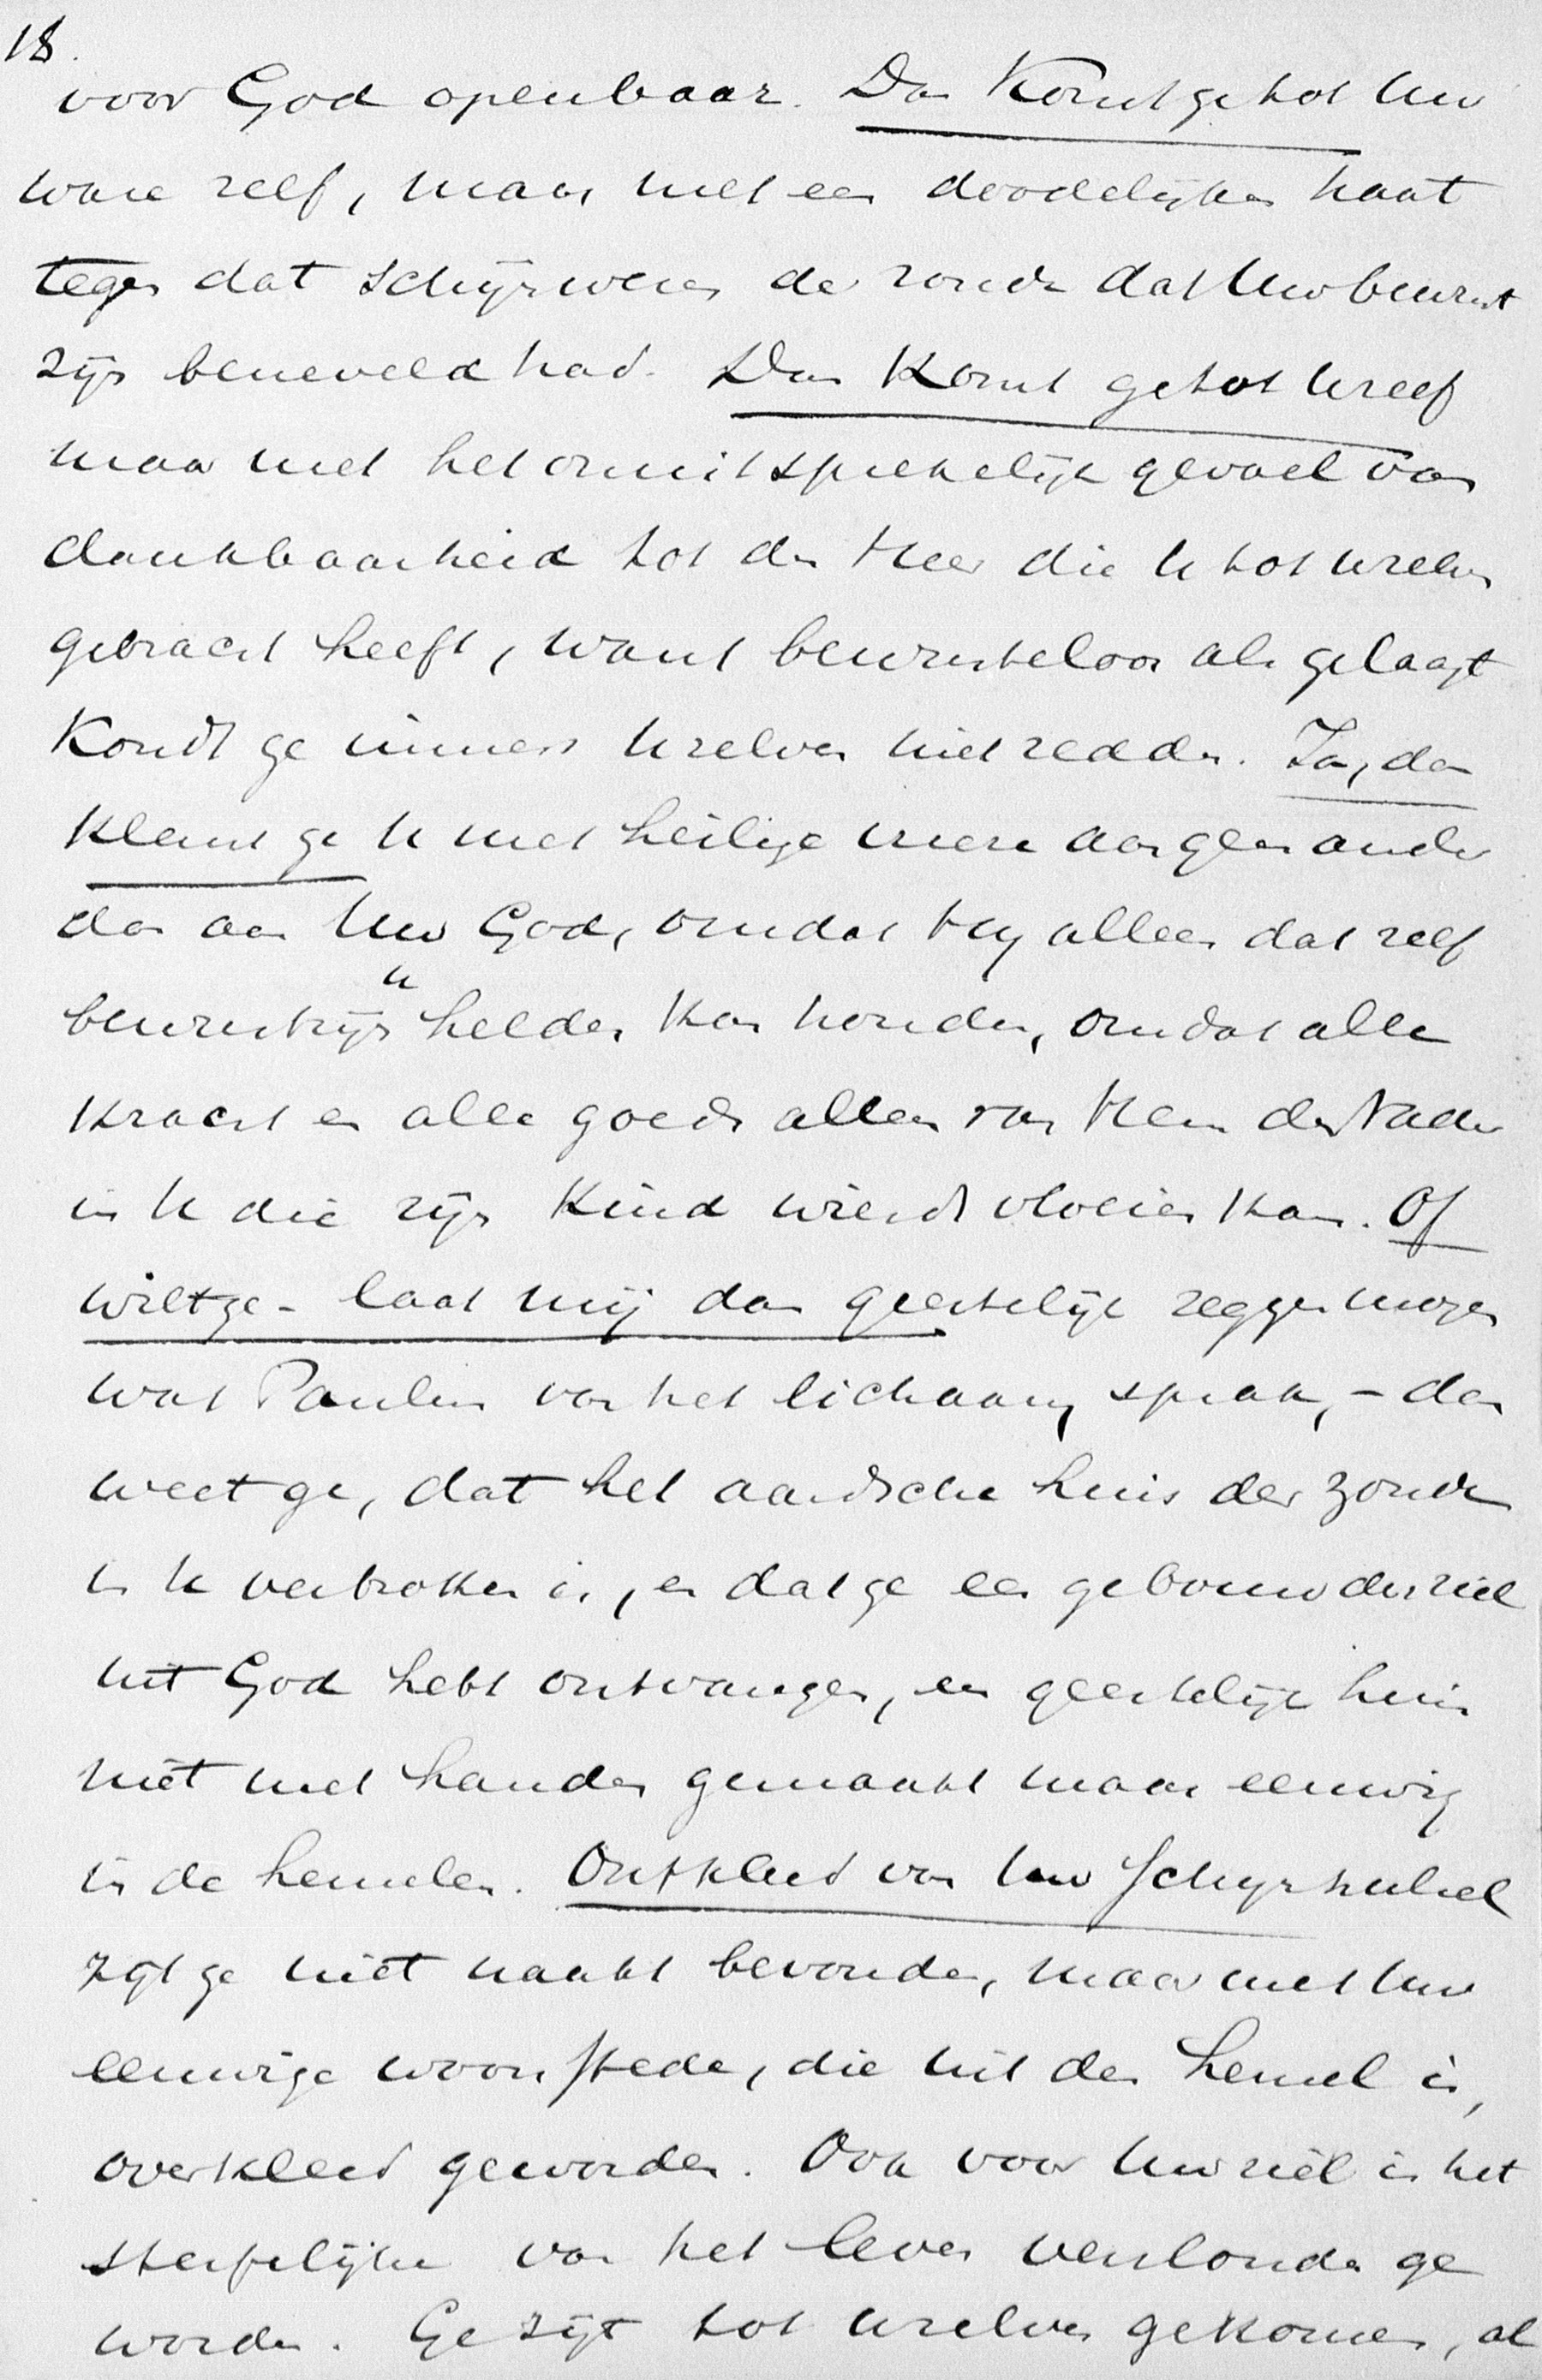 18.
voor God openbaar. Dan komt ge tot Uw
ware zelf, maar met een doodelijken haat
tegen dat schijnwezen der zonde dat Uw bewust
zijn beneveld had. Dan komt ge tot Uzelf
maar met het onuitsprekelijk gevoel van
dankbaarheid tot den Heer die U tot Uzelven
gebracht heeft, want bewusteloos als ge laagt
kondt ge immers Uzelven niet redden. Ja, dan
klemt ge U met heilige vreze aan geen ander
dan aan Uw God, omdat Hij alleen dat zelf
bewustzijn u helder kan houden, omdat alle
kracht en alle goeds alleen van Hem den Vader
in U die zijn kind wierdt vloeien kan. Of
wilt ge - laat mij dan geestelijk zeggen mogen
wat Paulus van het lichaam sprak, - dan
weet ge, dat het aardsche huis der zonde
in U verbroken is, en dat ge een gebouw der ziel
uit God hebt ontvangen, een geestelijk huis
niet met handen gemaakt maar eeuwig
in de hemelen. Ontkleed van Uw schijnhulsel
zijt ge niet naakt bevonden, maar met Uw
eeuwige woonstede, die uit den hemel is,
overkleed geworden. Ook voor Uw ziel is het
sterfelijke van het leven verslonden ge
worden. Ge zijt tot Uzelven gekomen, al